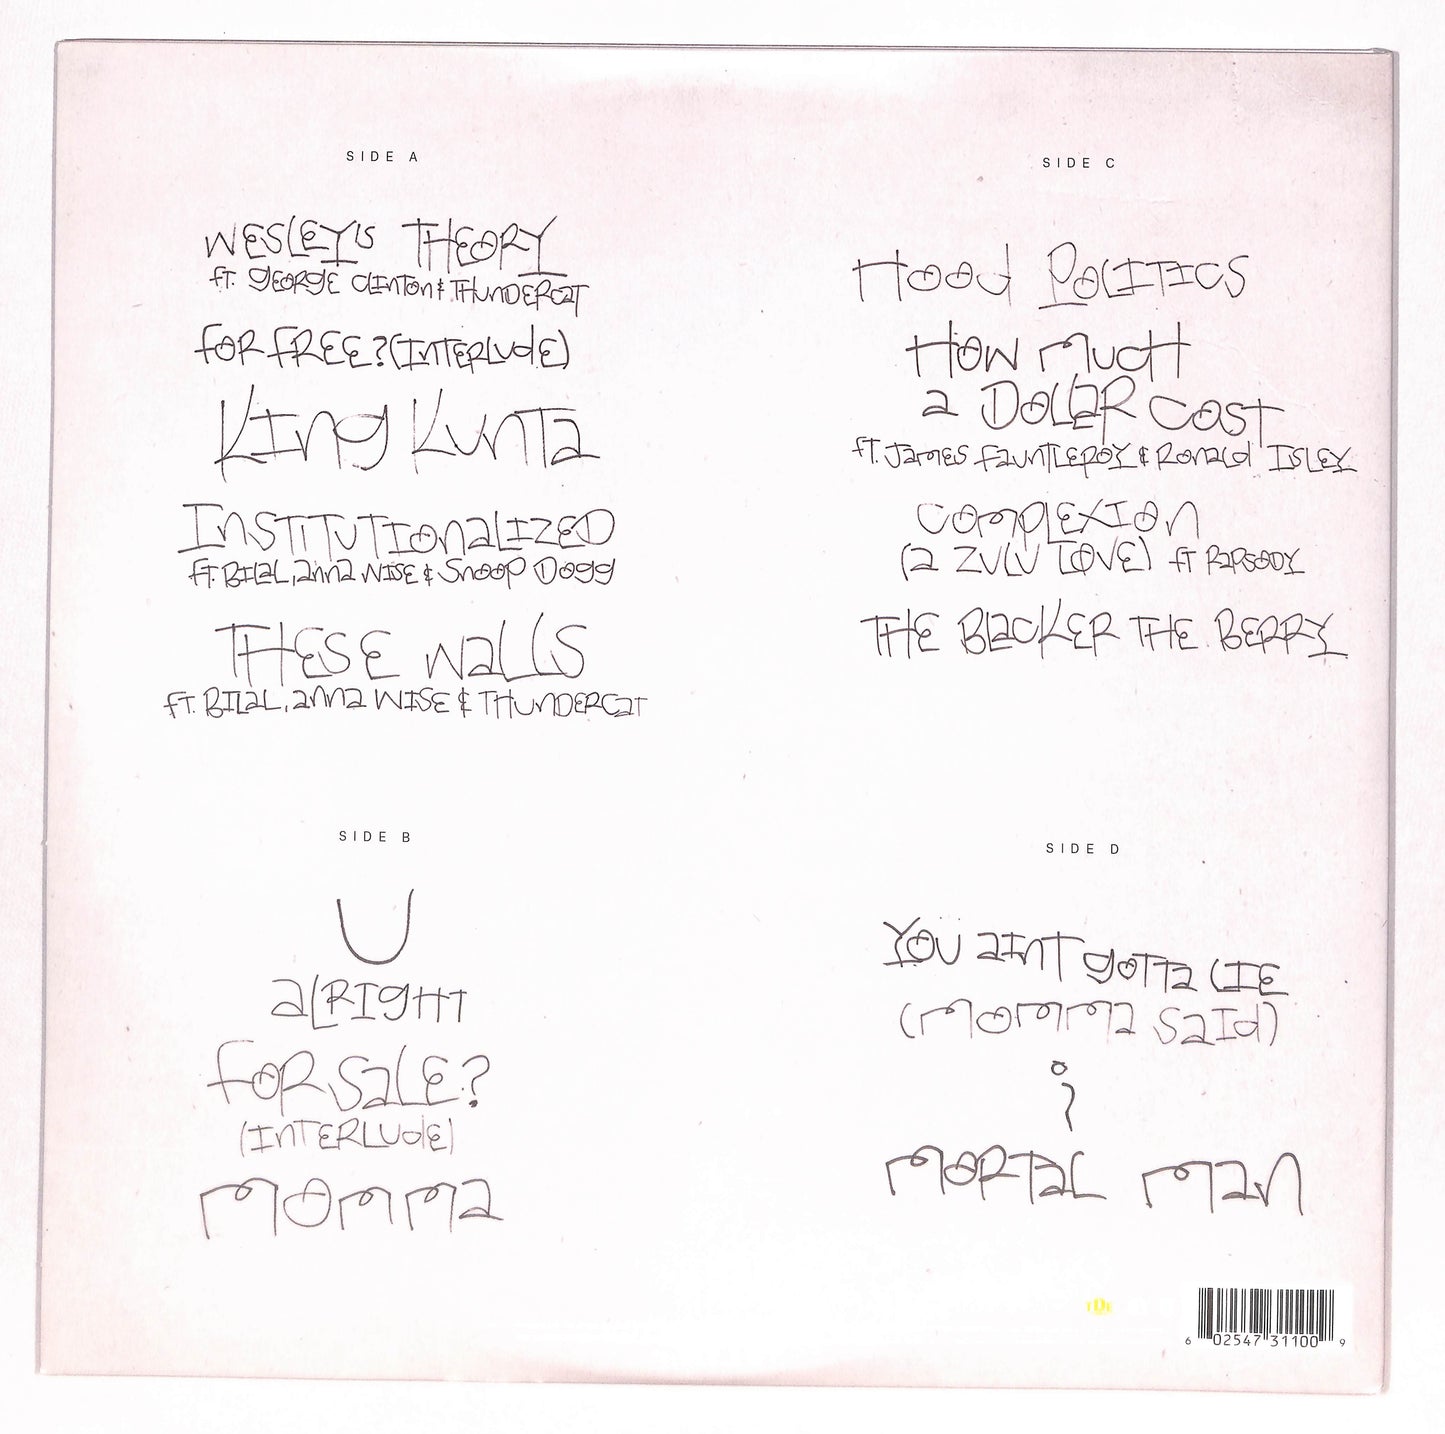 SIDE A
WESLEY'S THEORY
ft. GEORGE CLINTON & THUNDERCAT
FOR FREE? (INTERLUDE)
KING KUNTA
INSTITUTIONALIZED
ft. BILAL, ANNA WISE & SNOOP DOGG
THESE WALLS
ft. BILAL, ANNA WISE & THUNDERCAT
SIDE B
U
ALRIGHT
FOR SALE?
(INTERLUDE)
MOMMA
SIDE C
HOOD POLITICS
HOW MUCH
A DOLLAR COST
ft. JAMES FAUNTLEROY & RONALD ISLEY
COMPLEXION
(A ZULU LOVE) ft RAPSODY
THE BLACKER THE BERRY
SIDE D
YOU AINT GOTTA LIE
(MOMMA SAID)
i
MORTAL MAN
TDE
6 02547 31100 9